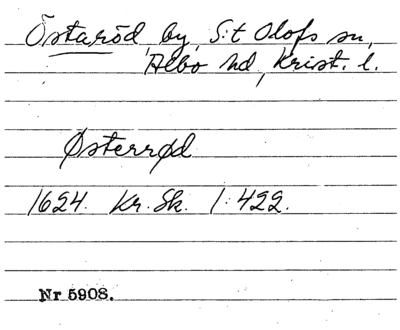 Östaröd, by, S:t Olofs sn,
Albo hd, Krist. l.
Østerrød
1624. Kr. Sk. 1:422.
Nr 5908.